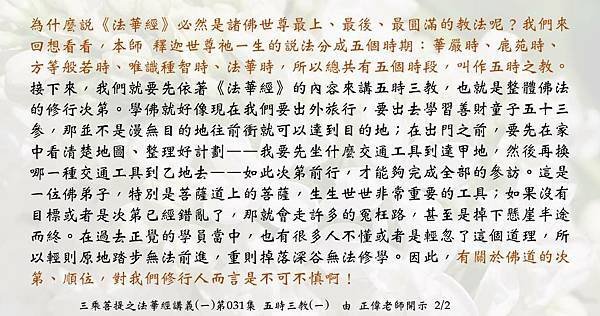 為什麼說《法華經》必然是諸佛世尊最上、最後、最圓滿的教法呢？我們來
回想看看，本師 釋迦世尊祂一生的說法分成五個時期：華嚴時、鹿苑時、
方等般若時、唯識種智時、法華時，所以總共有五個時段，叫作五時之教。
接下來，我們就要先依著《法華經》的內容來講五時三教，也就是整體佛法
的修行次第。學佛就好像現在我們要出外旅行，要出去學習善財童子五十三
參，那並不是漫無目的地往前衝就可以達到目的地；在出門之前，要先在家
中看清楚地圖、整理好計劃——我要先坐什麼交通工具到達甲地，然後再換
哪一種交通工具到乙地去——如此次第前行，才能夠完成全部的參訪。這是
一位佛弟子，特別是菩薩道上的菩薩，生生世世非常重要的工具；如果沒有
目標或者是次第已經錯亂了，那就會走許多的冤枉路，甚至是掉下懸崖半途
而終。在過去正覺的學員當中，也有很多人不懂或者是輕忽了這個道理，所
以輕則原地踏步無法前進，重則掉落深谷無法修學。因此，有關於佛道的次
第、順位，對我們修行人而言是不可不慎啊！
三乘菩提之法華經講義(一)第031集 五時三教(一) 由 正偉老師開示 2/2